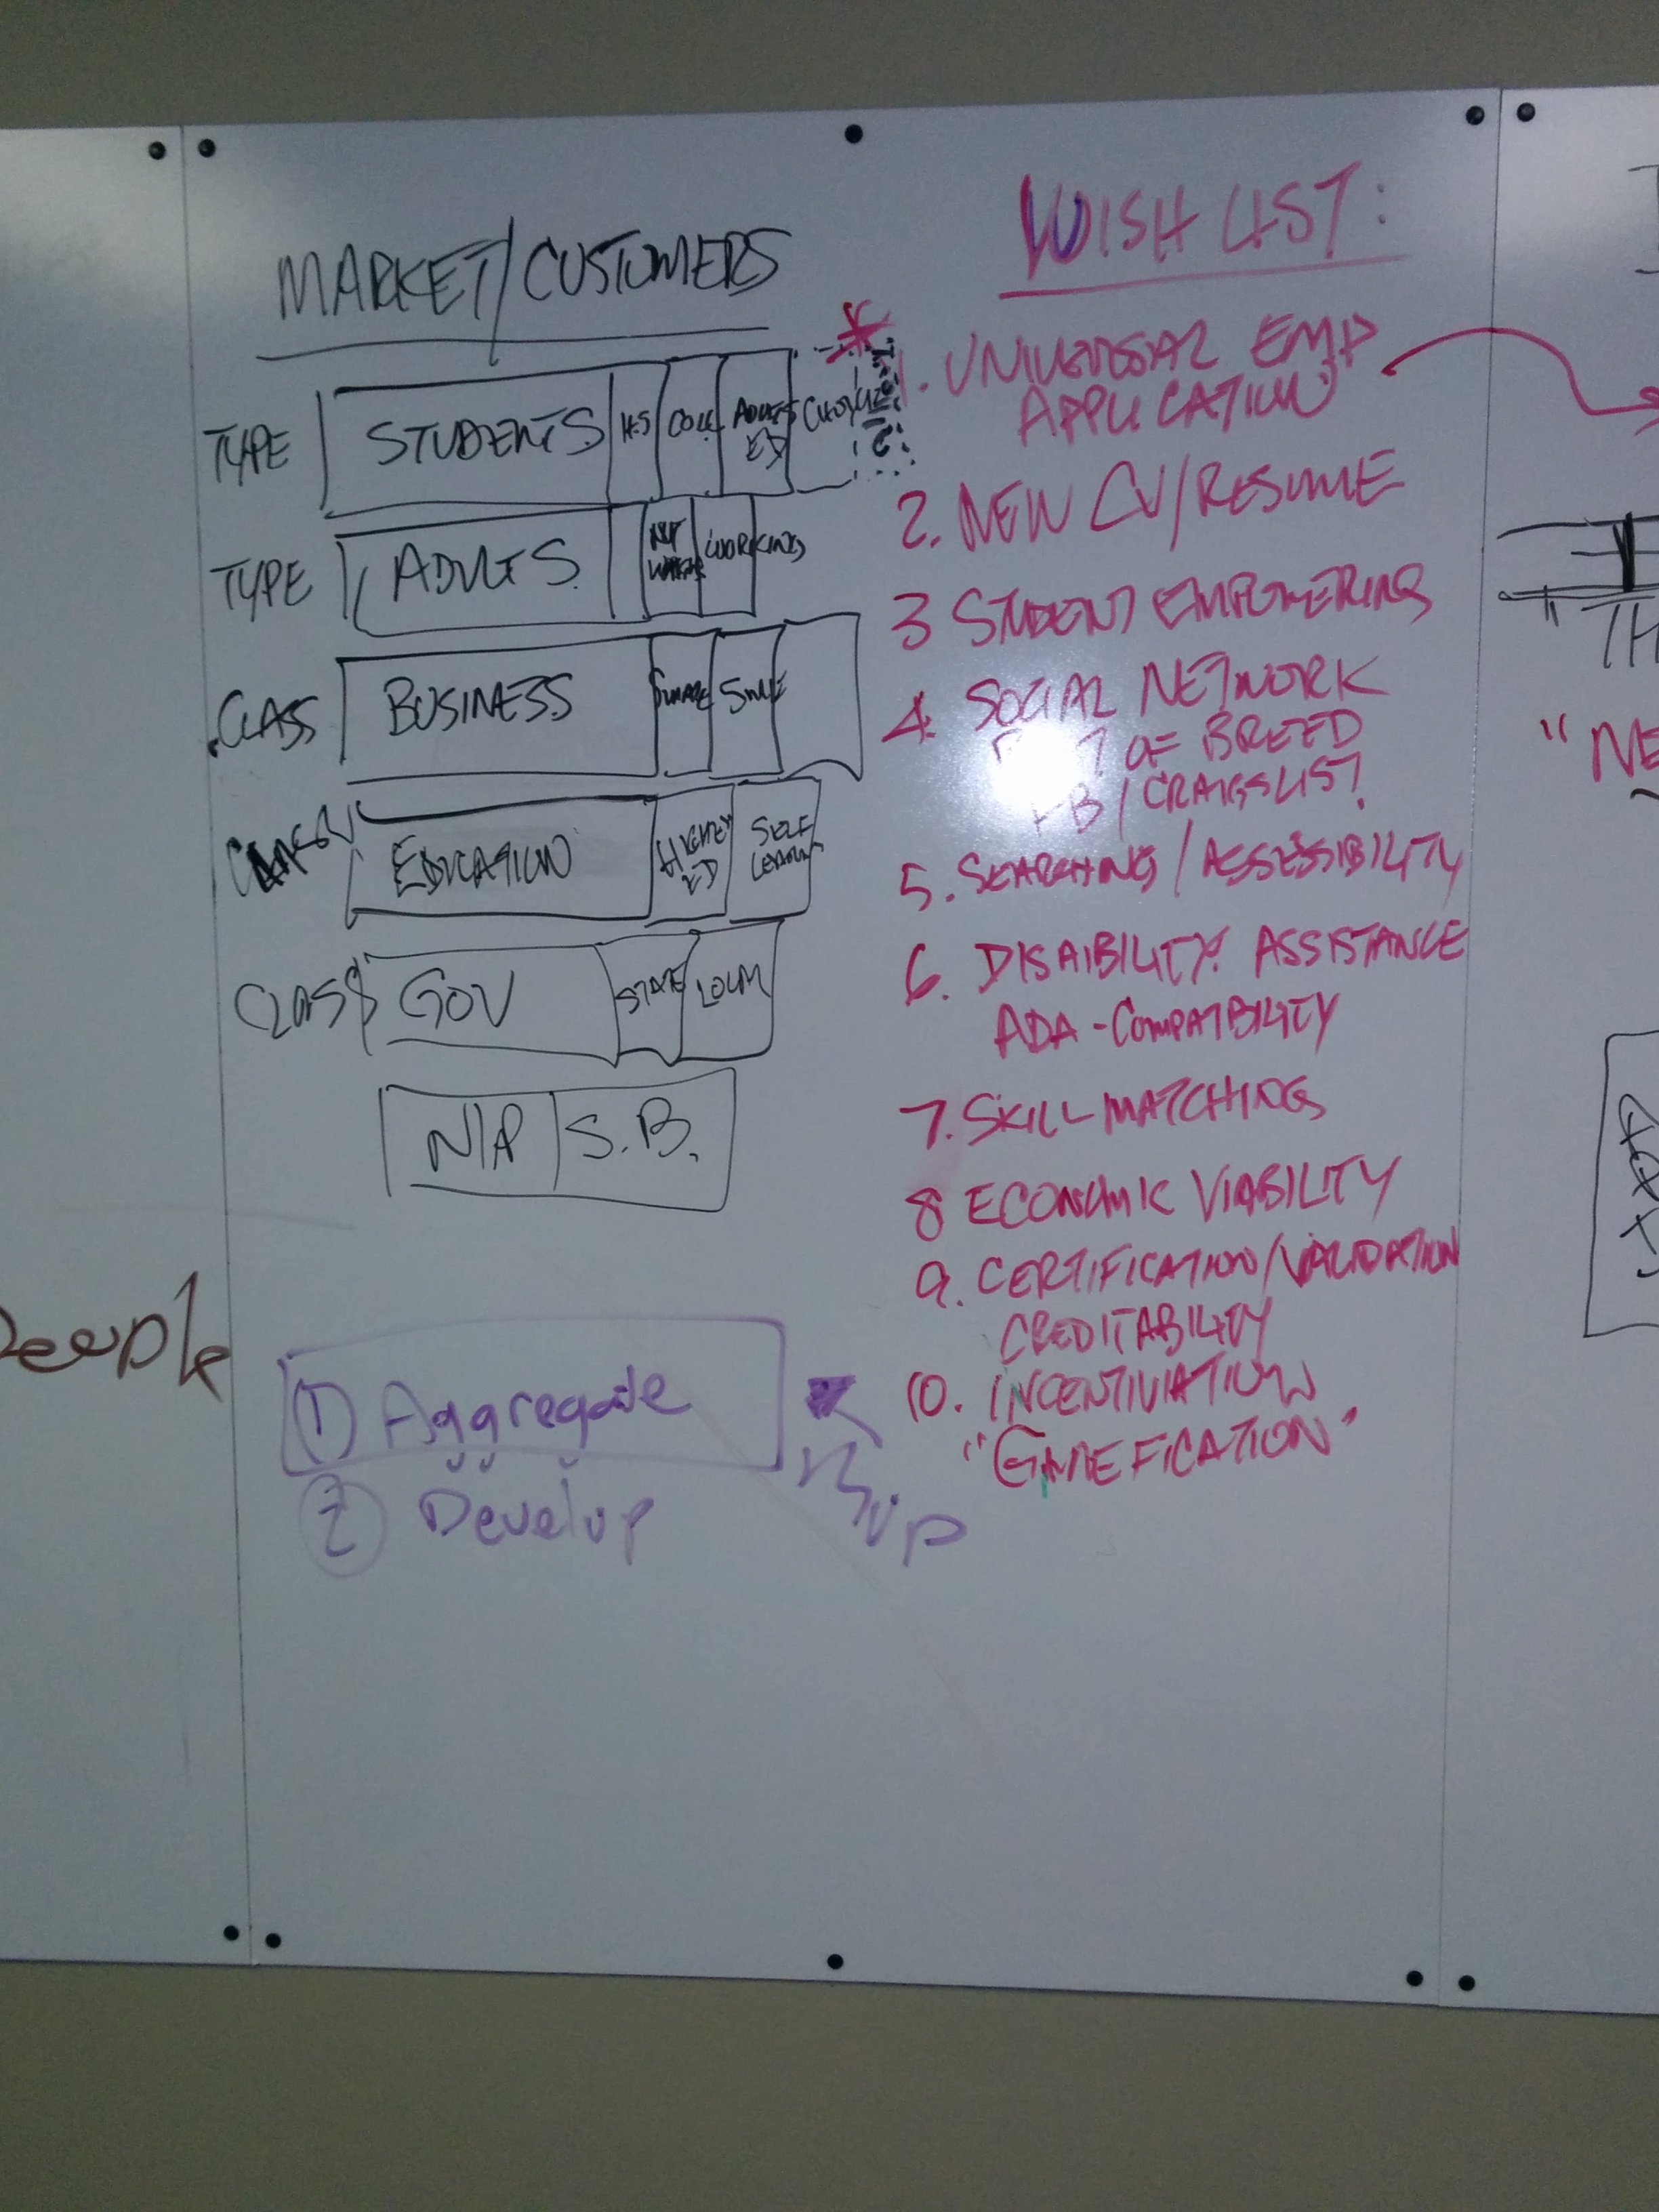 MARKET/CUSTOMERS
TYPE STUDENTS H.S COLL ADULTS ED
TYPE ADULTS NOT WORKING WORKING
CLASS BUSINESS SMALL SME
EDUCATION HIGHER ED SELF LEARNING
CLASS GOV STATE LOCAL
N/P S.B.
People
1 Aggregate
2 Develop
WISH LIST:
1. UNIVERSAL EMP
APPLICATION
2. NEW CV/RESUME
3 STUDENT EMPOWERING
4. SOCIAL NETWORK
OF BREED
FB/CRAIGSLIST
5. SEARCHING/ASSESSIBILITY
6. DISAIBILITY ASSISTANCE
ADA-COMPATBILITY
7. SKILL MATCHING
8 ECONOMIC VIABILITY
9. CERTIFICATION/VALIDATION
CREDITABILITY
10. INCENTIVIATION
"GAMEFICATION"
"TH
"NE